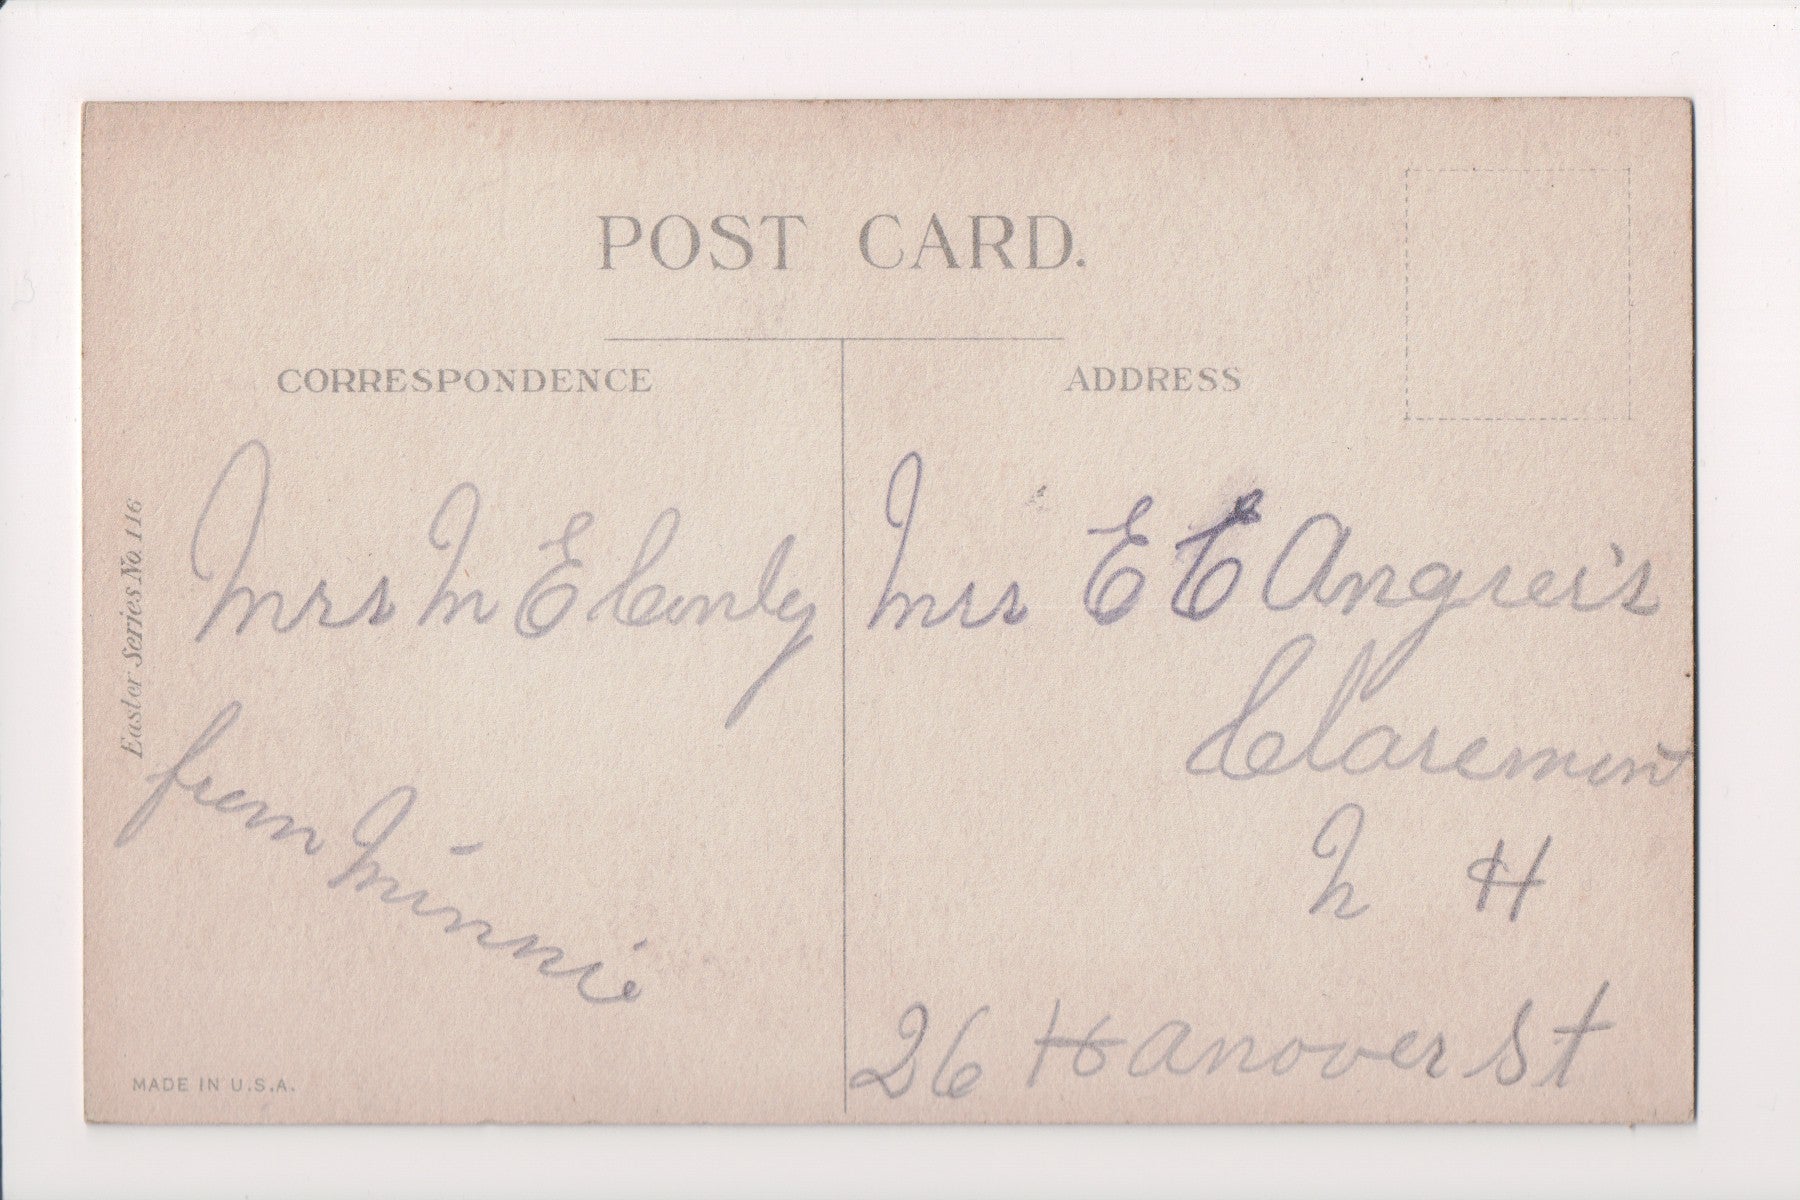 POST CARD.
CORRESPONDENCE
ADDRESS
Easter Series No. 116
Mrs M E Conly
from Minnie
Mrs E E
Claremont
N H
26 Hanover St
MADE IN U.S.A.